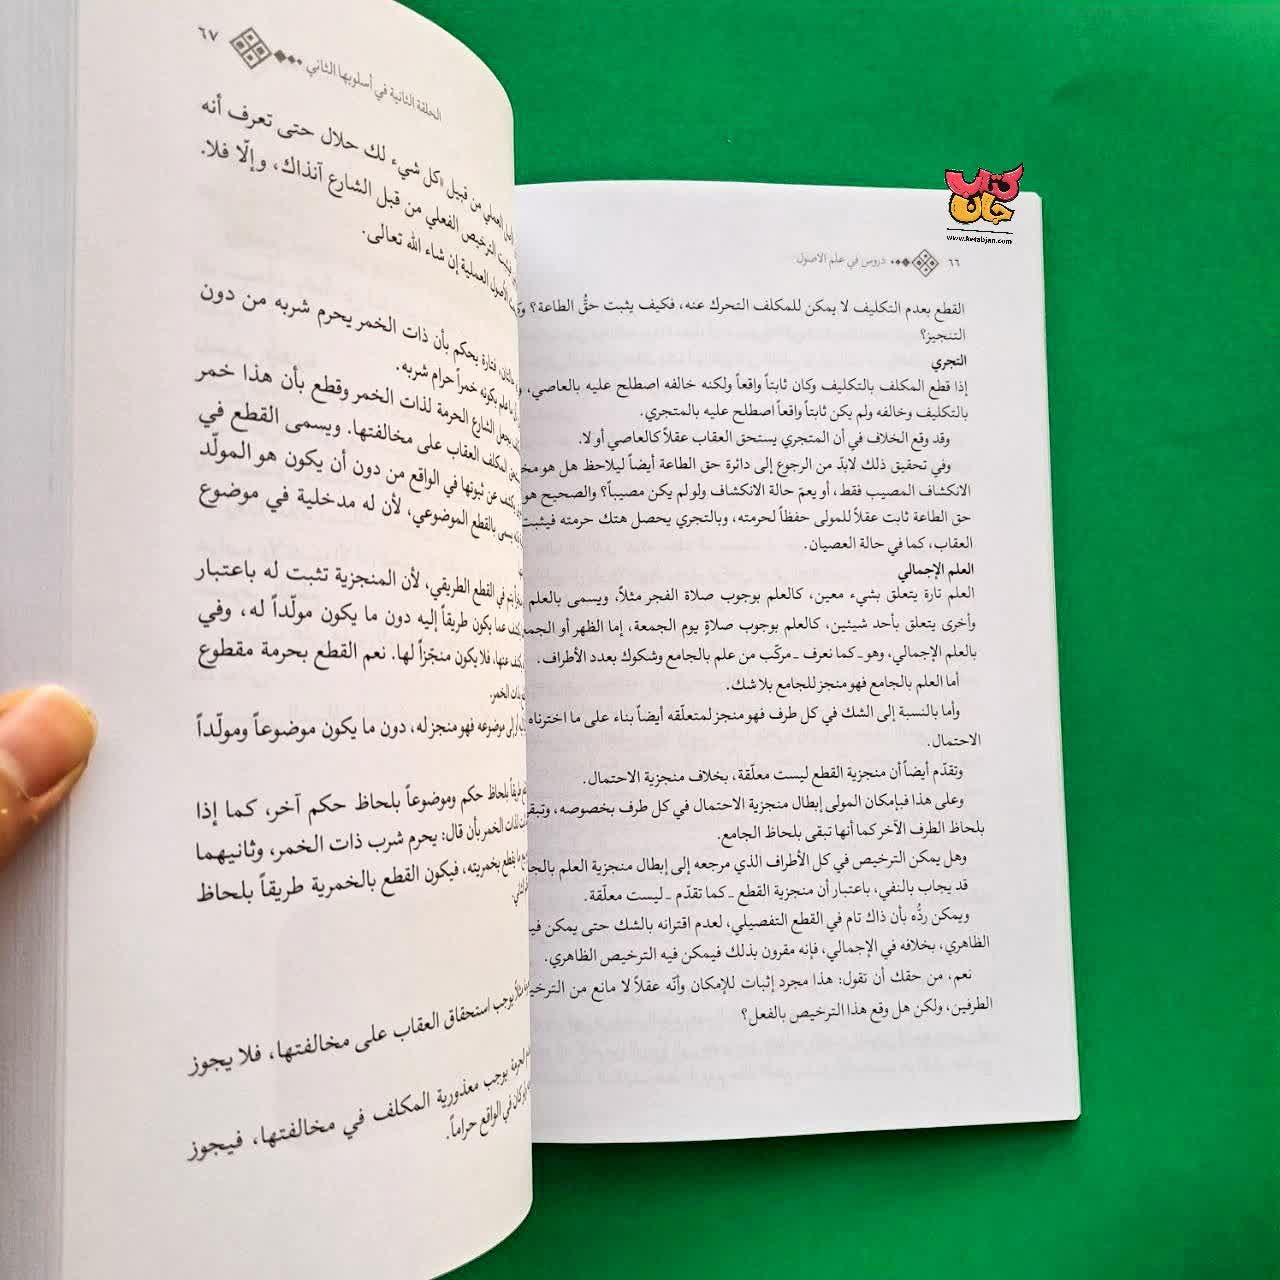 كتاب جان
www.ketabjan.com
٦٦ دروس في علم الاصول
القطع بعدم التكليف لا يمكن للمكلف التحرك عنه، فكيف يثبت حقُّ الطاعة؟
التنجيز؟
التجري
إذا قطع المكلف بالتكليف وكان ثابتاً واقعاً ولكنه خالفه اصطلح عليه بالعاصي،
بالتكليف وخالفه ولم يكن ثابتاً واقعاً اصطلح عليه بالمتجري.
وقد وقع الخلاف في أن المتجري يستحق العقاب عقلاً كالعاصي أو لا.
وفي تحقيق ذلك لابدّ من الرجوع إلى دائرة حق الطاعة أيضاً ليلاحظ هل هو
الانكشاف المصيب فقط، أو يعمّ حالة الانكشاف ولو لم يكن مصيباً؟ والصحيح هو
حق الطاعة ثابت عقلاً للمولى حفظاً لحرمته، وبالتجري يحصل هتك حرمته فيثبت
العقاب، كما في حالة العصيان.
العلم الإجمالي
العلم تارة يتعلق بشيء معين، كالعلم بوجوب صلاة الفجر مثلاً، ويسمى بالعلم
وأخرى يتعلق بأحد شيئين، كالعلم بوجوب صلاةٍ يوم الجمعة، إما الظهر أو
بالعلم الإجمالي، وهو ـ كما نعرف ـ مركّب من علم بالجامع وشكوك بعدد الأطراف.
أما العلم بالجامع فهو منجز للجامع بلا شك.
وأما بالنسبة إلى الشك في كل طرف فهو منجز لمتعلّقه أيضاً بناء على ما اخترناه
الاحتمال.
وتقدّم أيضاً أن منجزية القطع ليست معلّقة، بخلاف منجزية الاحتمال.
وعلى هذا فبإمكان المولى إبطال منجزية الاحتمال في كل طرف بخصوصه،
بلحاظ الطرف الآخر كما أنها تبقى بلحاظ الجامع.
وهل يمكن الترخيص في كل الأطراف الذي مرجعه إلى إبطال منجزية العلم
قد يجاب بالنفي، باعتبار أن منجزية القطع ـ كما تقدّم ـ ليست معلّقة.
ويمكن ردُّه بأن ذاك تام في القطع التفصيلي، لعدم اقترانه بالشك حتى يمكن
الظاهري، بخلافه في الإجمالي، فإنه مقرون بذلك فيمكن فيه الترخيص الظاهري.
نعم، من حقك أن تقول: هذا مجرد إثبات للإمكان وأنّه عقلاً لا مانع من
الطرفين، ولكن هل وقع هذا الترخيص بالفعل؟
الحلقة الثانية في أسلوبها الثاني ٦٧
العملي من قبيل «كل شيء لك حلال حتى تعرف أنه
الترخيص الفعلي من قبل الشارع آنذاك، وإلّا فلا.
الأصول العملية إن شاء الله تعالى.
فتارة يحكم بأن ذات الخمر يحرم شربه من دون
بكونه خمراً حرام شربه.
الشارع الحرمة لذات الخمر وقطع بأن هذا خمر
المكلف العقاب على مخالفتها. ويسمى القطع في
عن ثبوتها في الواقع من دون أن يكون هو المولّد
يسمى بالقطع الموضوعي، لأن له مدخلية في موضوع
في القطع الطريقي، لأن المنجزية تثبت له باعتبار
عما يكون طريقاً إليه دون ما يكون مولّداً له، وفي
عنها، فلا يكون منجّزاً لها. نعم القطع بحرمة مقطوع
الخمر.
إلى موضوعه فهو منجز له، دون ما يكون موضوعاً ومولّداً
طريقاً بلحاظ حكم وموضوعاً بلحاظ حكم آخر، كما إذا
لذات الخمر بأن قال: يحرم شرب ذات الخمر، وثانيهما
بخمريته، فيكون القطع بالخمرية طريقاً بلحاظ
يوجب استحقاق العقاب على مخالفتها، فلا يجوز
يوجب معذورية المكلف في مخالفتها، فيجوز
كان في الواقع حراماً.